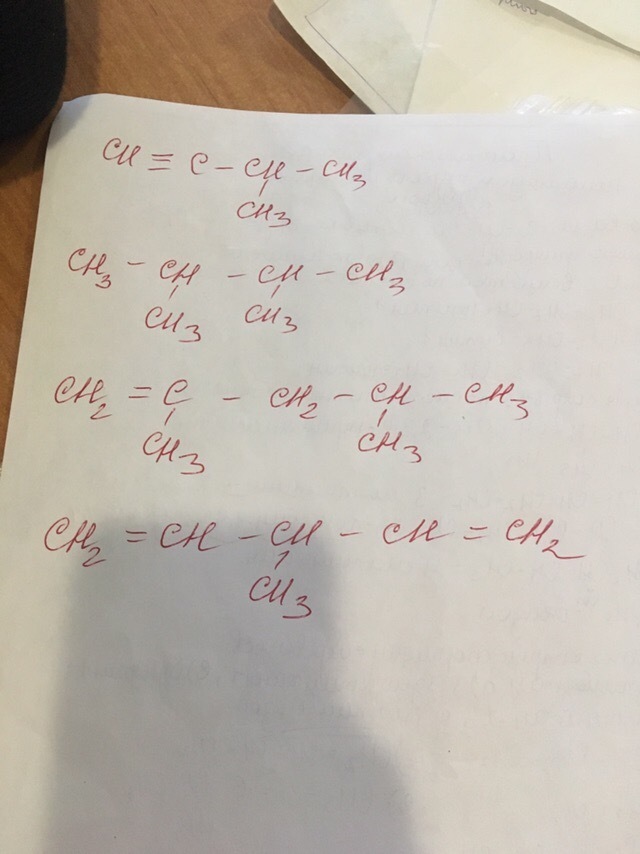 CH ≡ C – CH – CH3
CH3
CH3 – CH – CH – CH3
CH3 CH3
CH2 = C – CH2 – CH – CH3
CH3 CH3
CH2 = CH – CH – CH = CH2
CH3